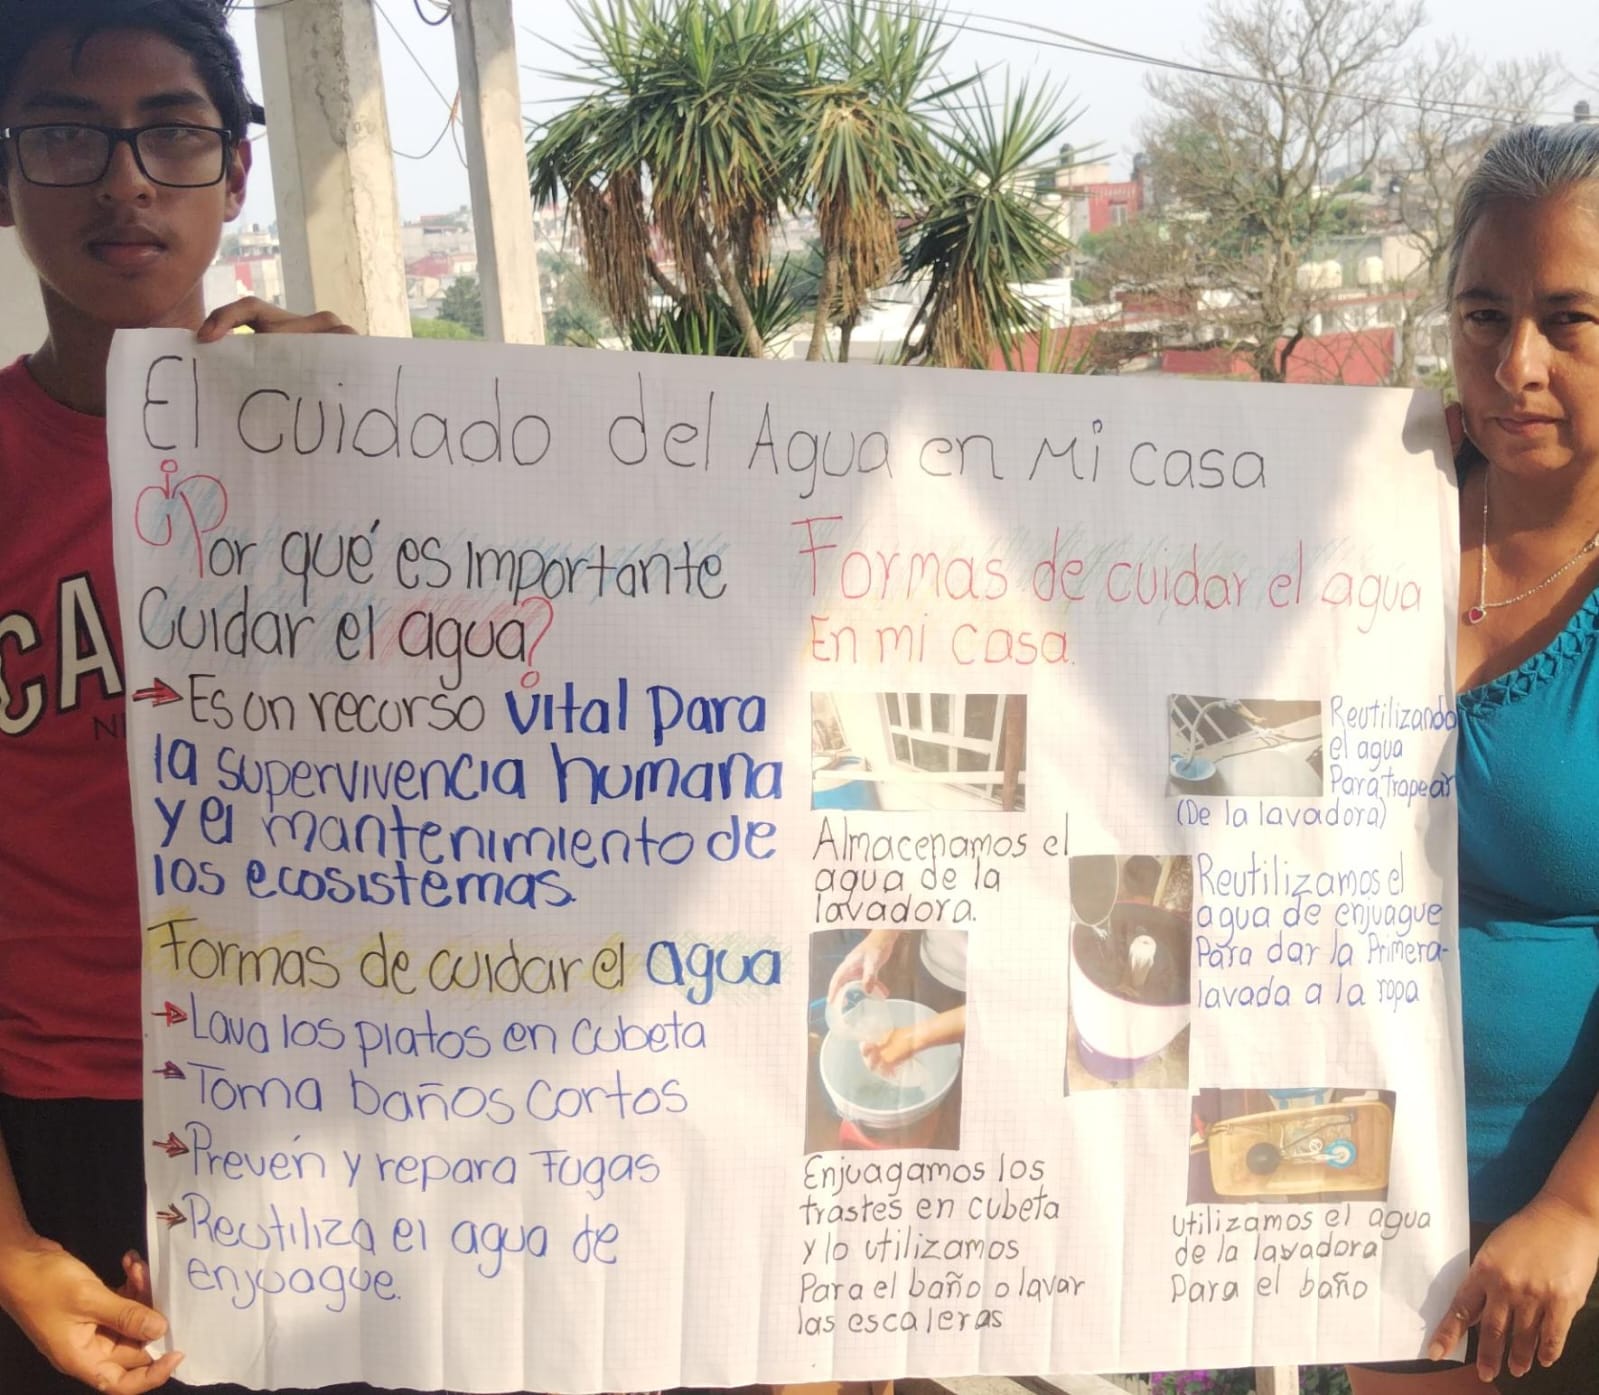 El Cuidado del Agua en Mi casa
¿Por qué es importante
Cuidar el agua?
Es un recurso vital para
la supervivencia humana
y el mantenimiento de
los ecosistemas.
Formas de cuidar el agua
Lava los platos en cubeta
Toma baños cortos
Prevén y repara Fugas
Reutiliza el agua de
enjuague.
Formas de cuidar el agua
En mi casa.
Almacenamos el
agua de la
lavadora.
Enjuagamos los
trastes en cubeta
y lo utilizamos
Para el baño o lavar
las escaleras
Reutilizando
el agua
Para trapear
(De la lavadora)
Reutilizamos el
agua de enjuague
Para dar la Primera-
lavada a la ropa
utilizamos el agua
de la lavadora
Para el baño
CA